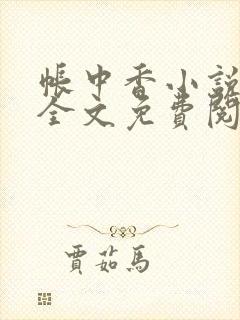 帳中香小說
全文免費閱
賈茹馬